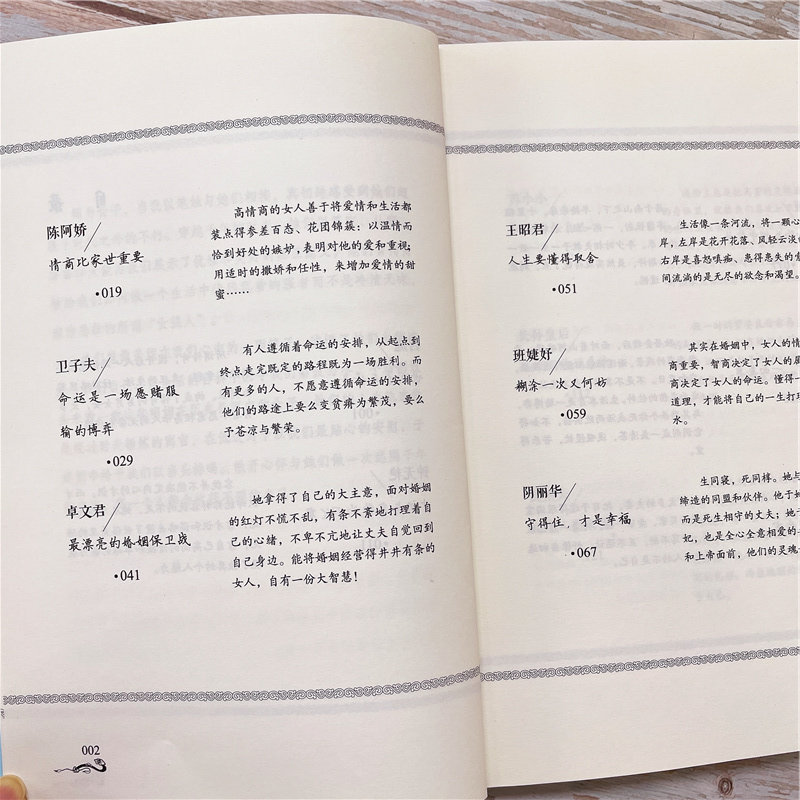 陈阿娇
情商比家世重要
•019
高情商的女人善于将爱情和生活都
装点得参差百态、花团锦簇：以温情而
恰到好处的嫉妒，表明对他的爱和重视；
用适时的撒娇和任性，来增加爱情的甜
蜜……
卫子夫
命运是一场愿赌服
输的博弈
•029
有人遵循着命运的安排，从起点到
终点走完既定的路程既为一场胜利。而
有更多的人，不愿意遵循命运的安排，
他们的路途上要么变贫瘠为繁茂，要么
予苍凉与繁荣。
卓文君
最漂亮的婚姻保卫战
•041
她拿得了自己的大主意，面对婚姻
的红灯不慌不乱，有条不紊地打理着自
己的心绪，不卑不亢地让丈夫自觉回到
自己身边。能将婚姻经营得井井有条的
女人，自有一份大智慧！
002
王昭君
人生要懂得取舍
•051
生活像一条河流，将一颗心
岸，左岸是花开花落、风轻云淡
右岸是喜怒嗔痴、患得患失的
间流淌的是无尽的欲念和渴望。
班婕妤
糊涂一次又何妨
•059
其实在婚姻中，女人的情
商重要，智商决定了女人的
商决定了女人的命运。懂得一
道理，才能将自己的一生打理
水。
阴丽华
守得住，才是幸福
•067
生同寝，死同椁。她与
缔造的同盟和伙伴。他于她
而是死生相守的丈夫；她于
妃，也是全心全意相爱的
和上帝面前，他们的灵魂